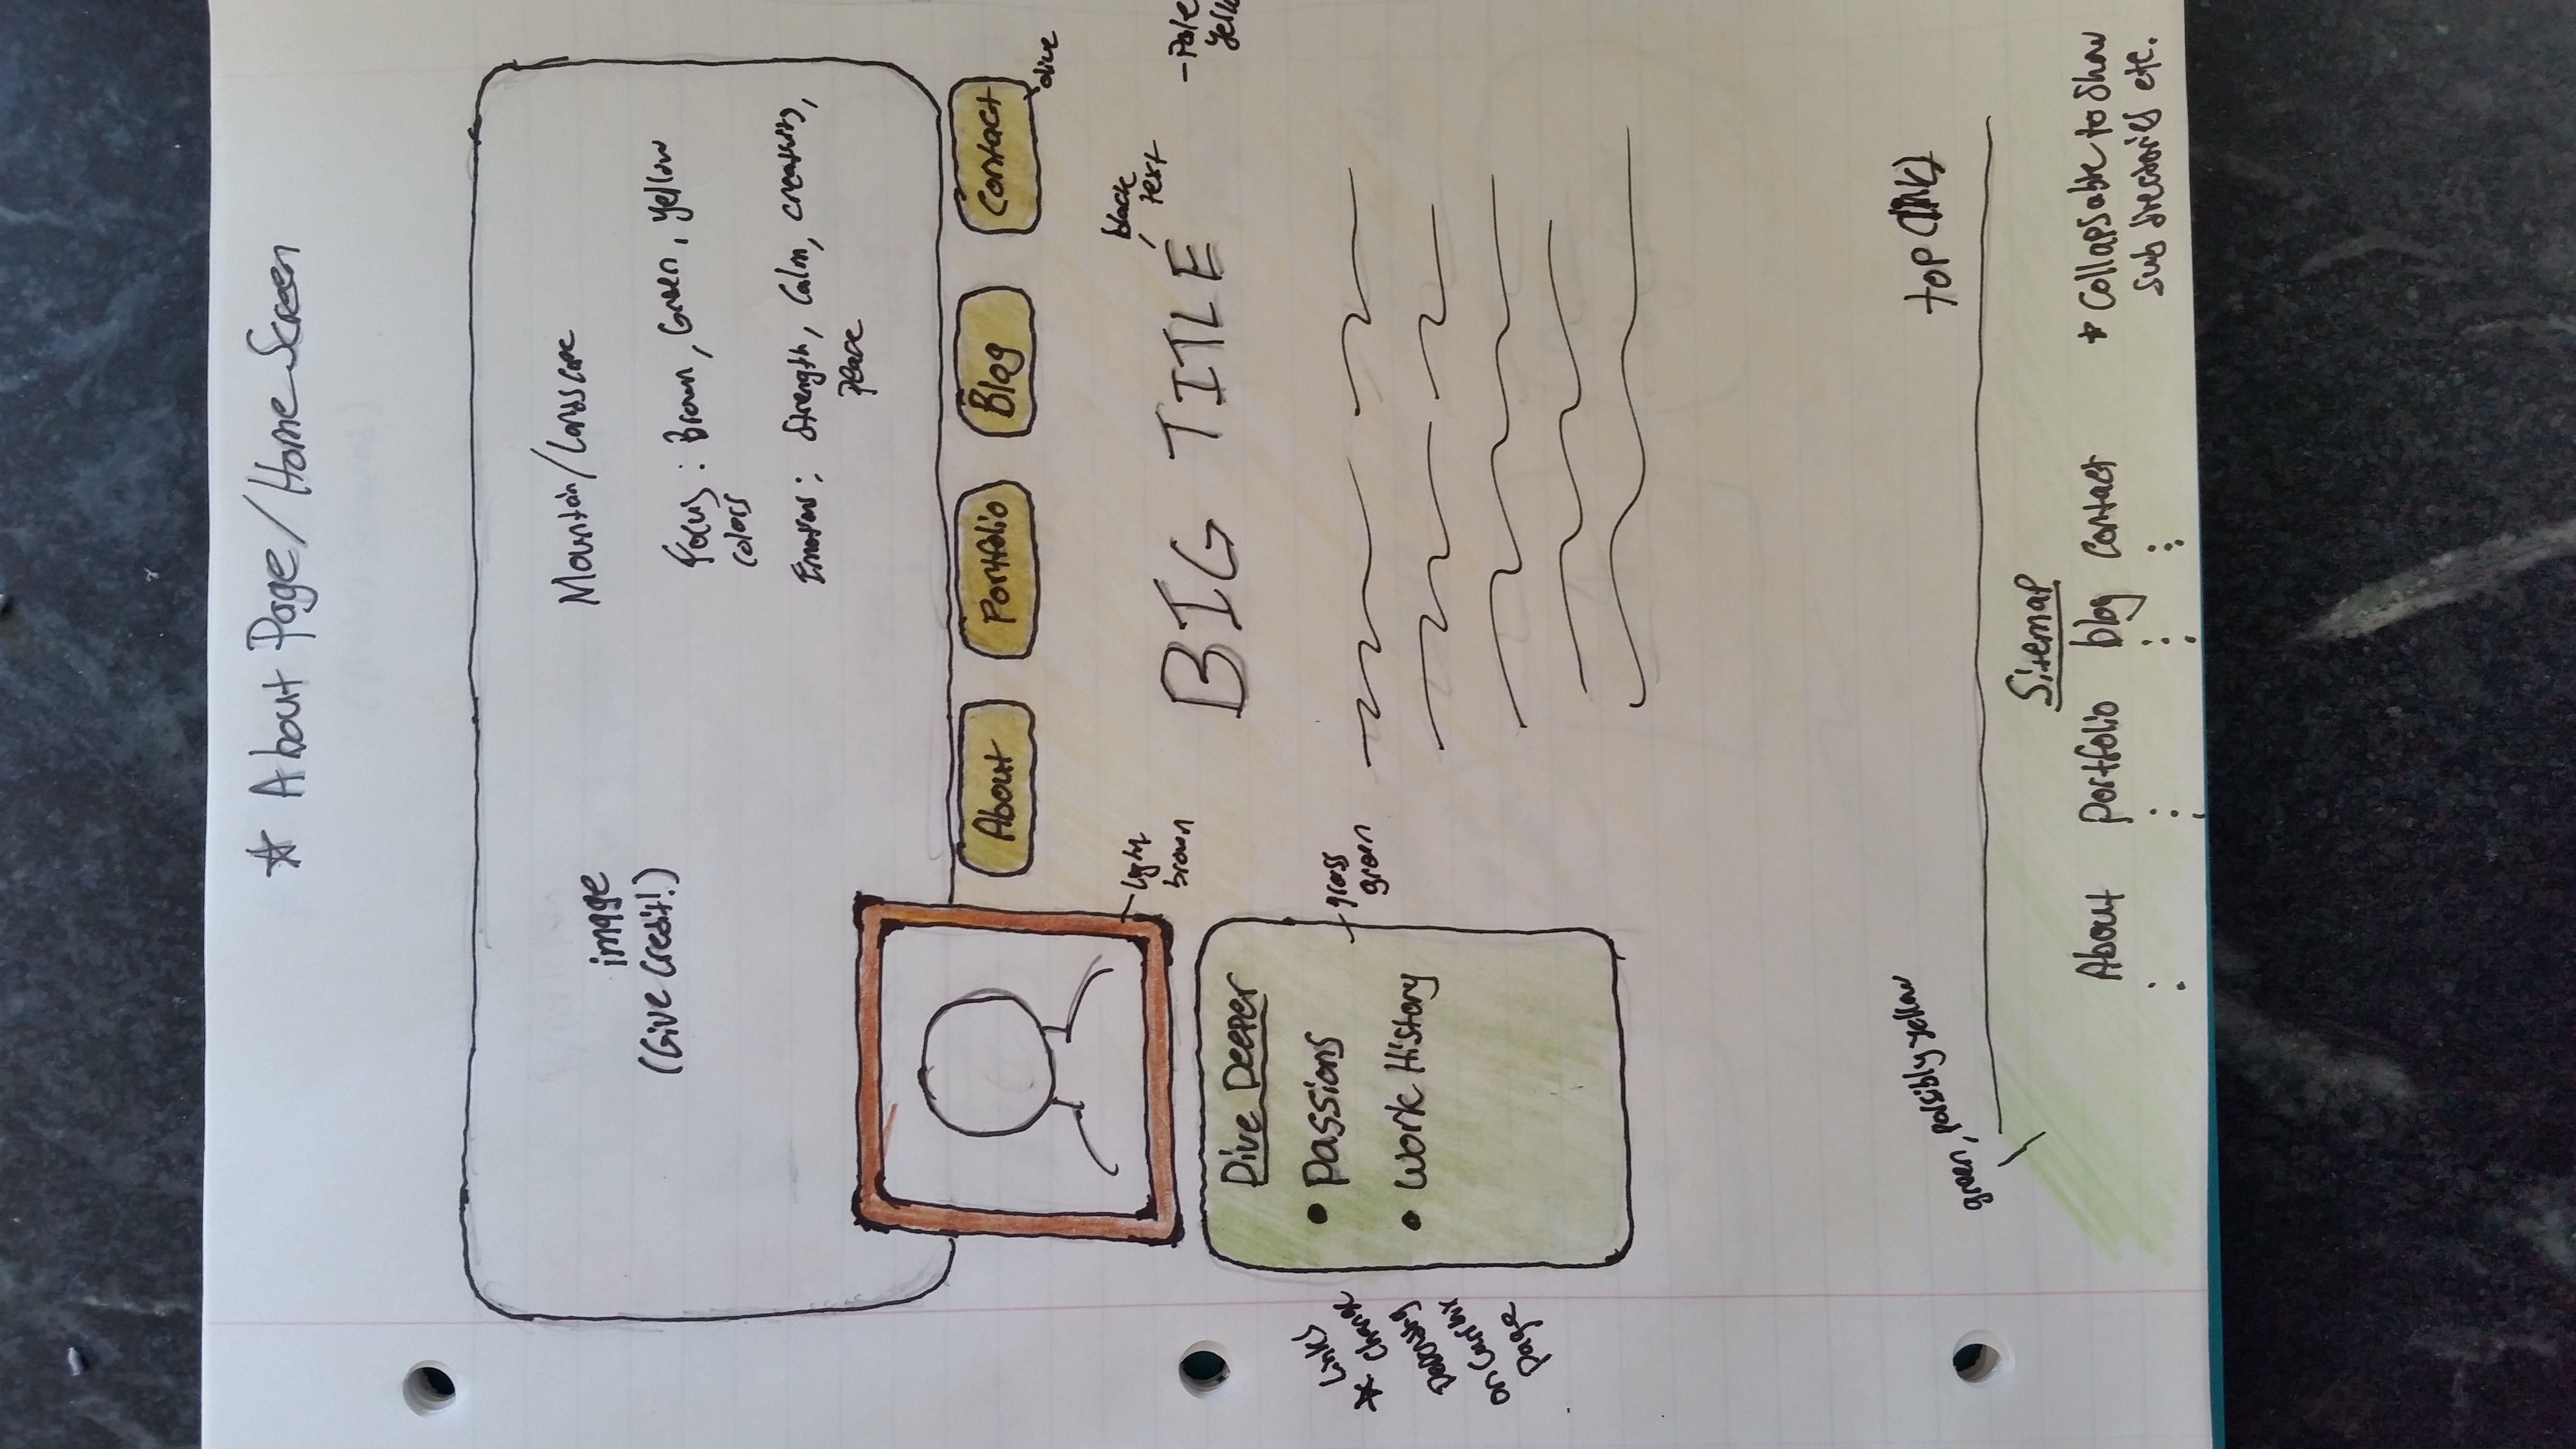 ☆ About Page/Home Screen
image
(Give Credit!)
Mountain/Landscape
Focus : Brown, Green, yellow
colors
Emotions: Strength, Calm, creativity,
peace
About
Portfolio
Blog
Contact
olive
light
brown
black
text
BIG TITLE
-Pale
Dive Deeper
• Passions
• Work History
grass
green
* Links
Change
Depending
on
Page
green, possibly yellow
top (link)
Sitemap
About Portfolio blog contact
* Collapsable to show
sub directories etc.